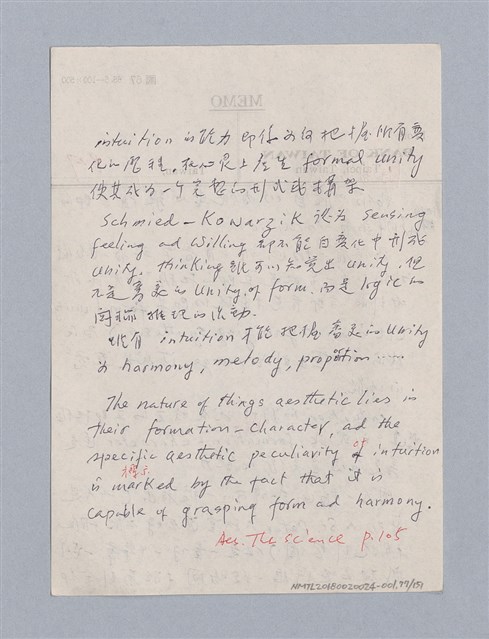 MEMO
intuition 的能力即係如何把十層所有變
化的歷程，在心眼上產生 formal unity
使其成為一个完整的形式或構架
Schmied-Kowarzik 認為 sensing
feeling ad willing 都不能自變化中形成
unity. thinking 雖可以知覺出 unity, 但
不是 的 unity of form. 而是 logic 的
推理的活動.
唯有 intuition 才能把 的 unity
如 harmony, melody, proportion......
The nature of things aesthetic lies in
their formation-character, ad the
specific aesthetic peculiarity of intuition
標示
is marked by the fact that it is
capable of grasping form ad harmony.
Aes. The science p.105
NMTL20180020024-001.77/151